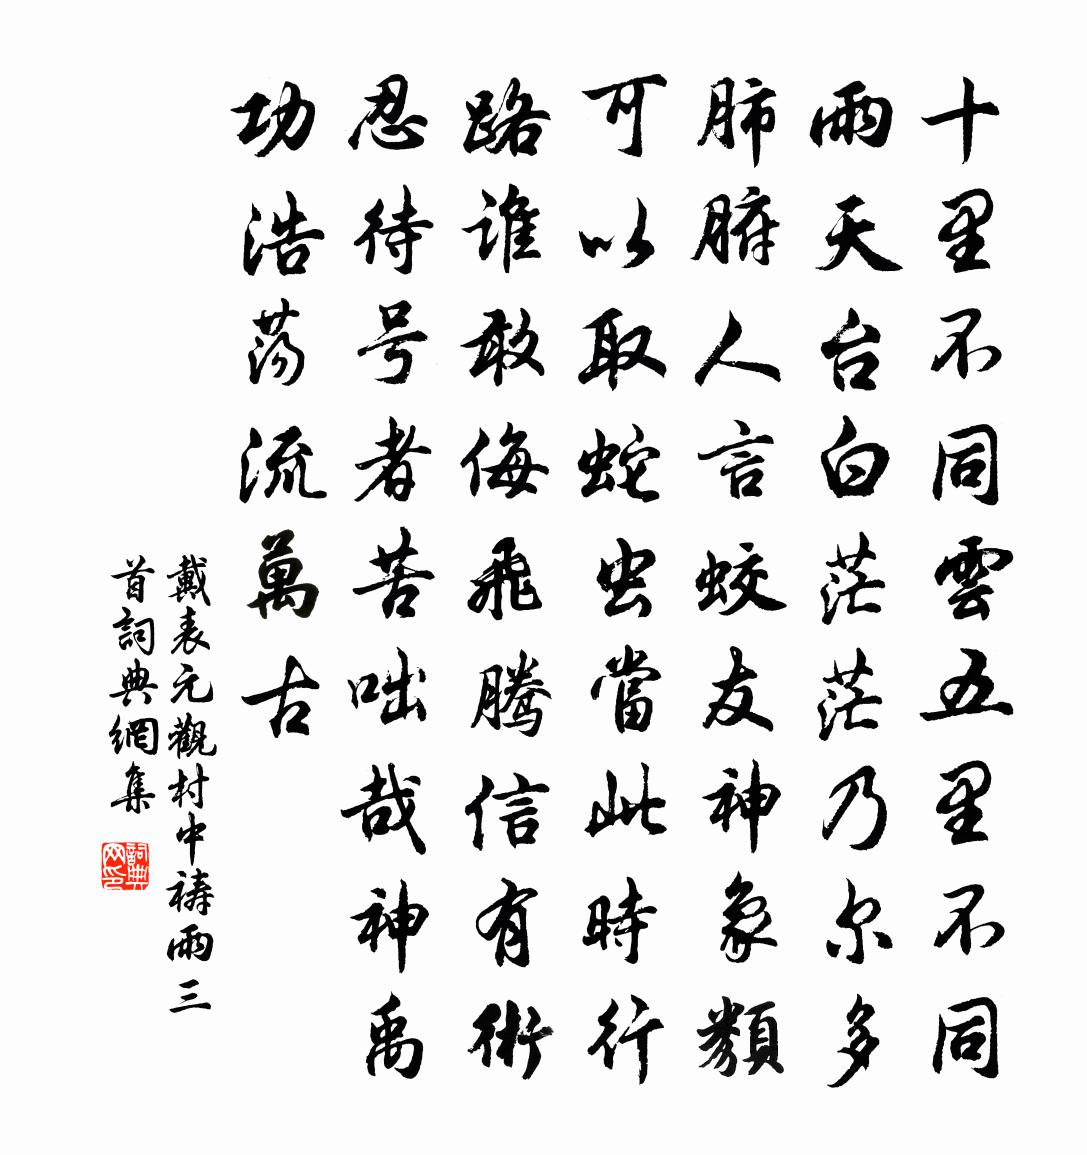 十里不同雲五里不同
雨天台白茫茫乃尔多
肺腑人言蛟友神象類
可以取蛇虫當此時行
路谁敢侮飛騰信有術
忍待号者苦咄哉神禹
功浩荡流萬古
戴表元觀村中祷雨三
首詞典網集
詞典网印